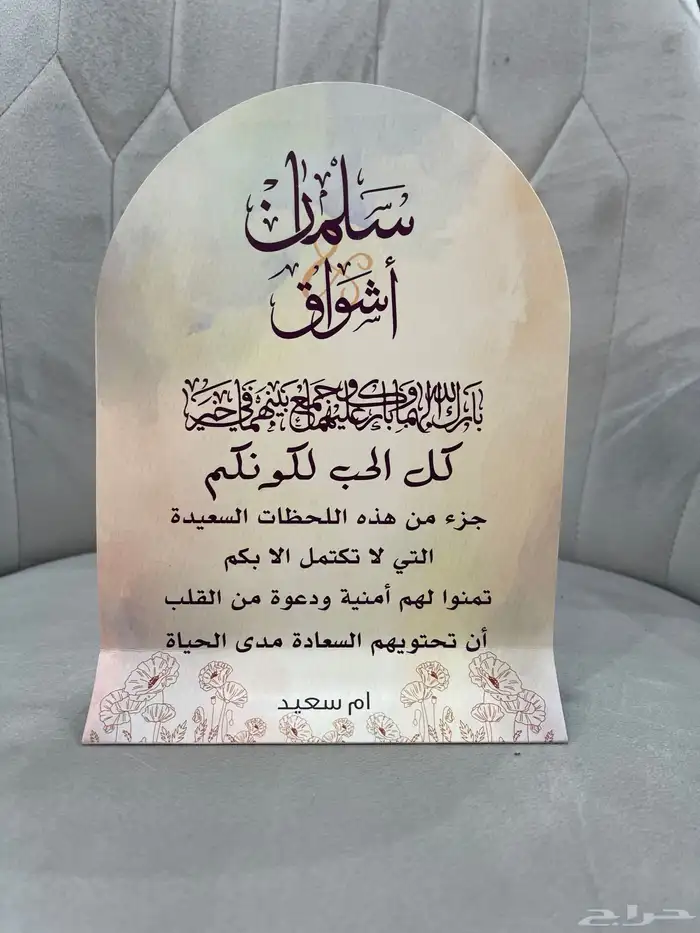 سلمان
&
أشواق
بارك الله لهما وبارك عليهما وجمع بينهما في خير
كل الحب لكونكم
جزء من هذه اللحظات السعيدة
التي لا تكتمل الا بكم
تمنوا لهم أمنية ودعوة من القلب
أن تحتويهم السعادة مدى الحياة
ام سعيد
حراج